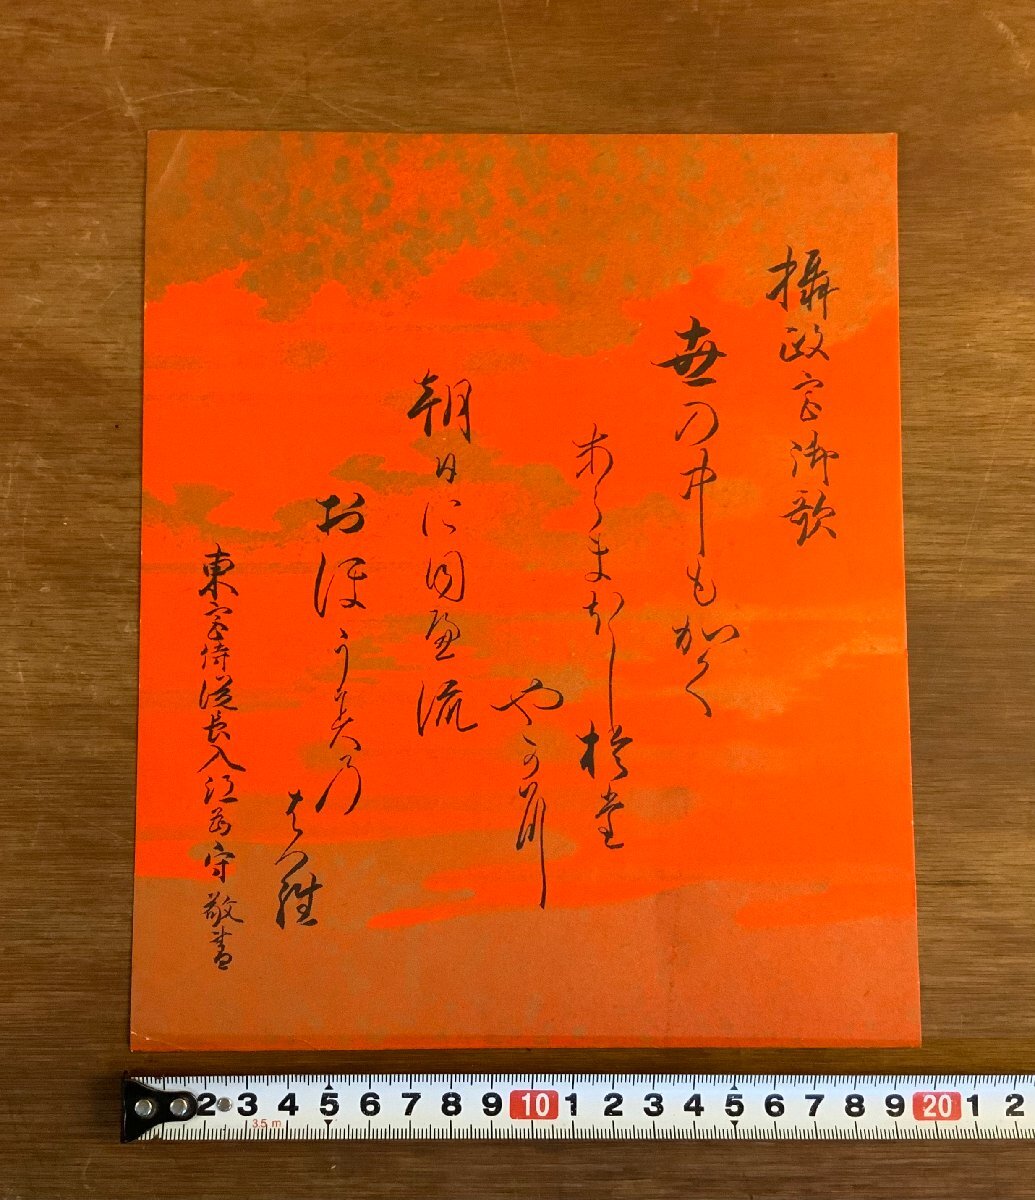 攝政宮御歌
世乃中もかく
あらまほし於堂
や可耳
朝日に匂遍流
おほうみ乃
はら
東宮侍従長入江為守敬書
2 3 4 5 6 7 8 9 10 1 2 3 4 5 6 7 8 9 20 1 2
3.5m